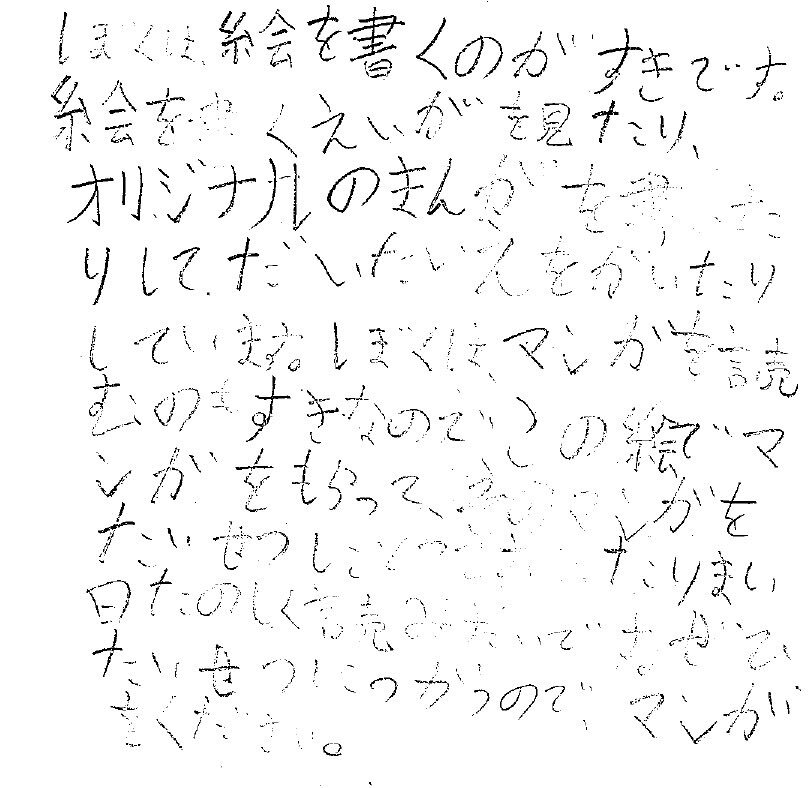 ぼくは、絵を書くのがすきです。
絵をかくえいがを見たり、
オリジナルのまんがを書いた
りして、だいたいえをかいたり
しています。ぼくは、マンガを読
むのもすきなので、この絵でマ
ンガをもらって、そのマンガを
だいせつしことっておいたりまい
日たのしく読みたいです。ぜひ
たいせつにつかうので、マンガ
をください。